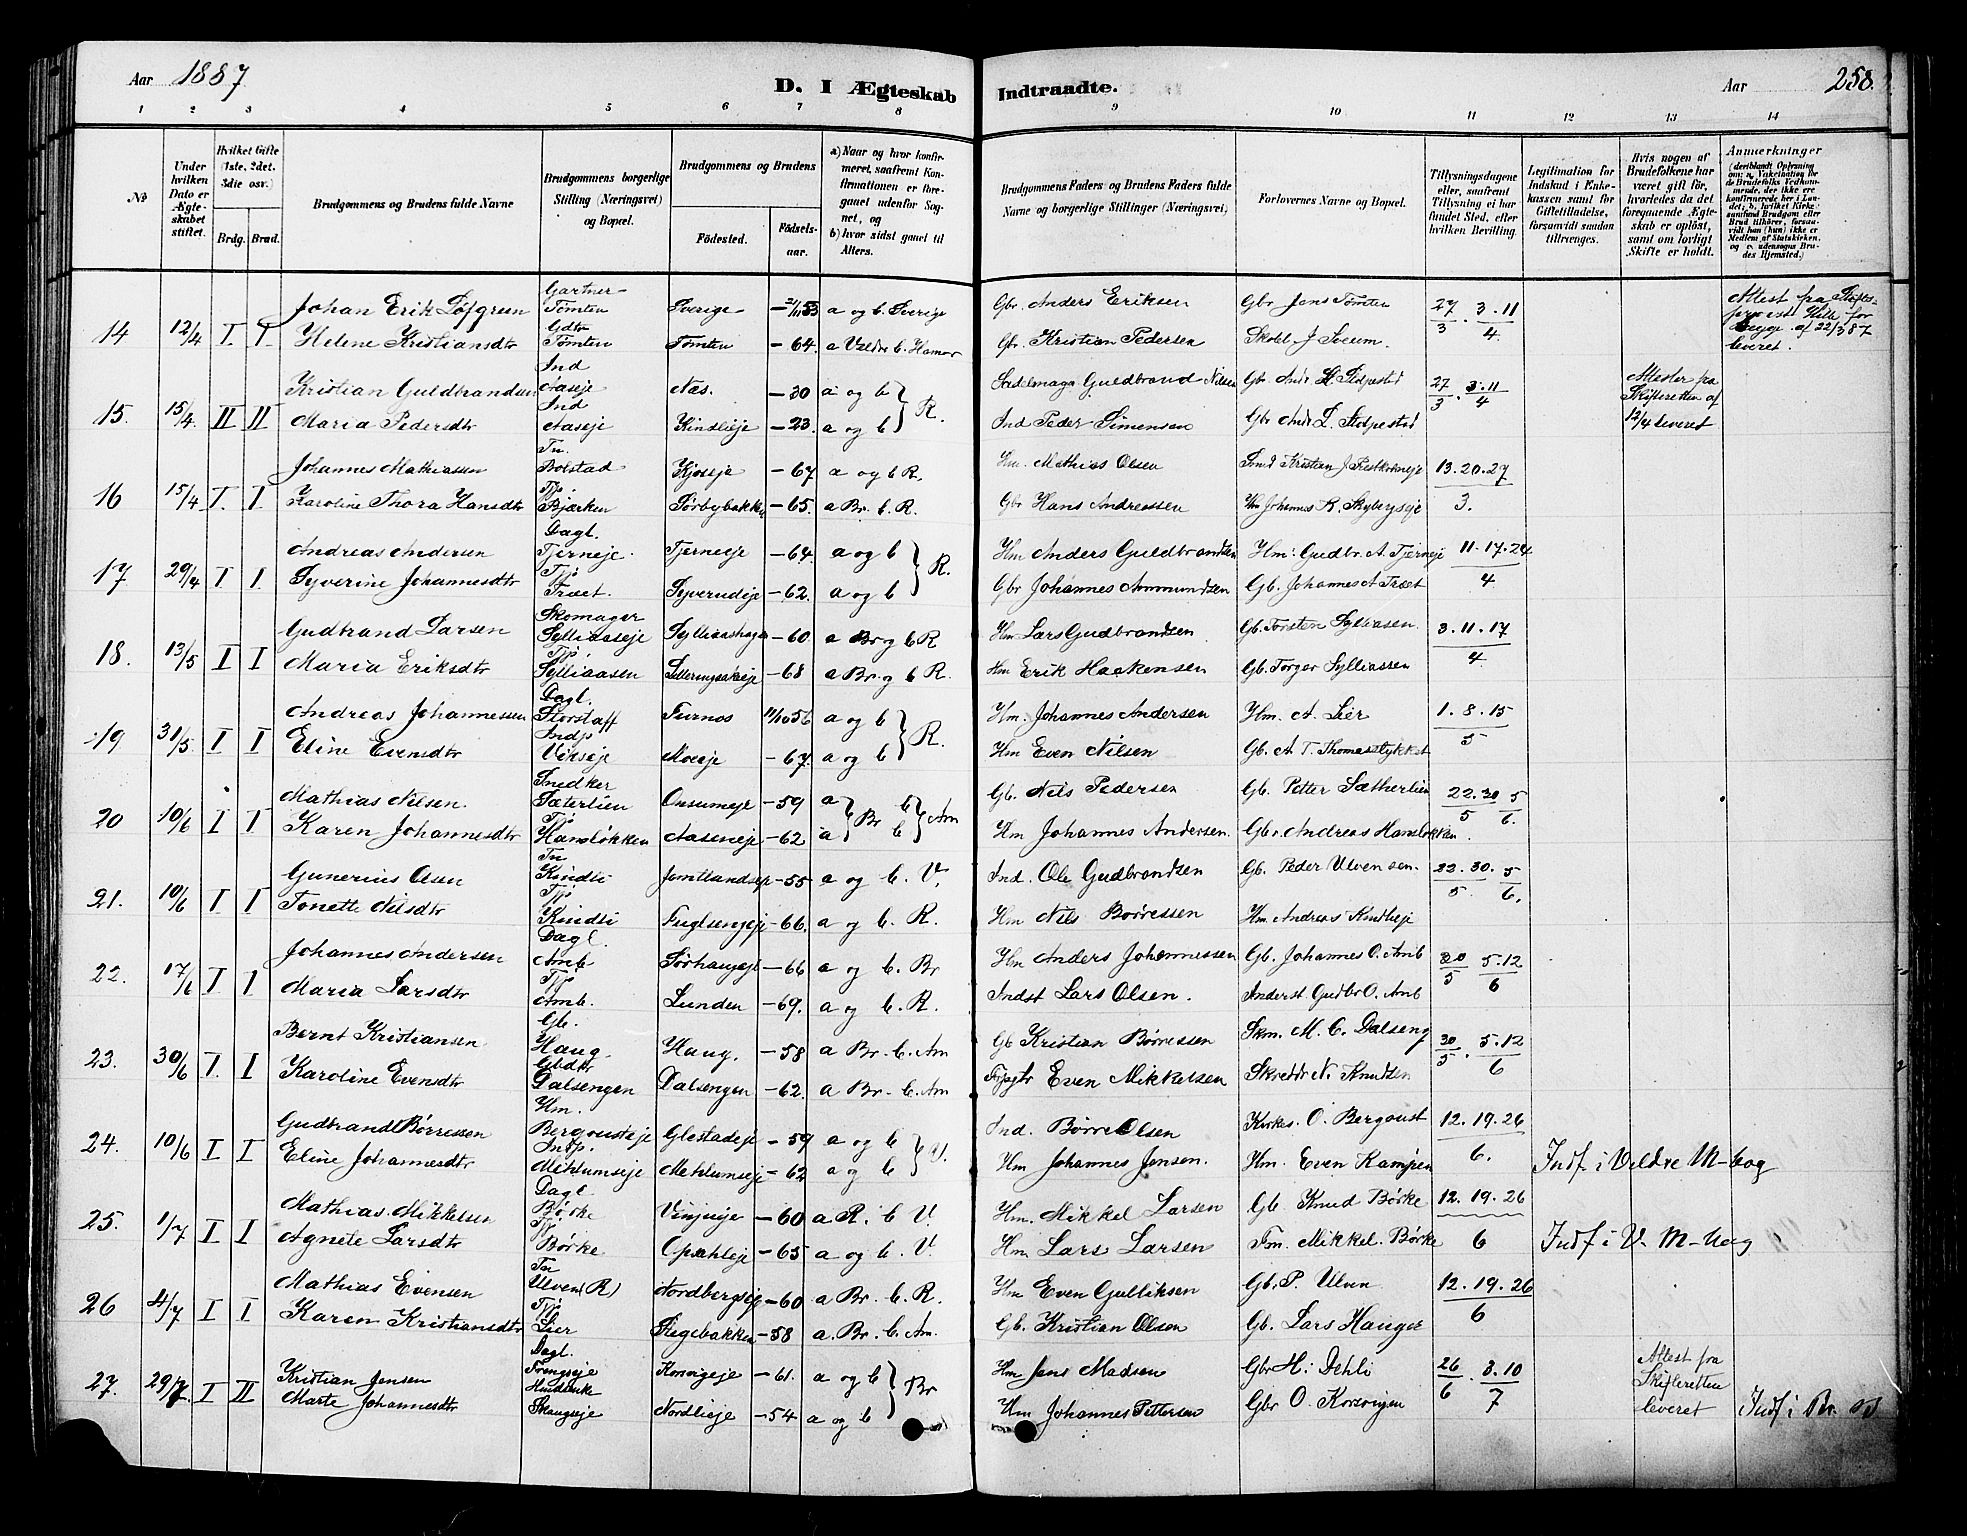 Aar 1887
D. I Ægteskab Indtraadte.
Aar 258.
1 2 3 4 5 6 7 8 9 10 11 12 13 14
No
Under hvilken Dato er Ægteskabet stiftet.
Hvilket Gifte (1ste, 2det, 3die osv.)
Brdg. Brud.
Brudgommens og Brudens fulde Navne
Brudgommens borgerlige Stilling (Næringsvei) og Bopæl.
Brudgommens og Brudens
Fødested. Fødselsaar.
a) Naar og hvor konfirmeret, saafremt Konfirmationen er foregaaet udenfor Sognet, og
b) hvor sidst gaaet til Alters.
Brudgommens Faders og Brudens Faders fulde Navne og borgerlige Stillinger (Næringsvei)
Forlovernes Navne og Bopæl.
Tillysningsdagene eller, saafremt Tillysning ei har fundet Sted, efter hvilken Bevilling.
Legitimation for Indskud i Enkekassen samt for Giftetilladelse, forsaavidt saadan tiltrænges.
Hvis nogen af Brudefolkene har været gift før, hvorledes da det foregaaende Ægteskab er opløst, samt om lovligt Skifte er holdt.
Anmærkninger
Gartner
Johan Erik Løfgreen Tømten Sverige - 21/11 53 a og b. Sverige Gbr. Anders Eriksen Gbr Jens Tømten 27/3. 3.11/4
14 12/4 I. I. Gdtr
Helene Kristiansdtr Tømten Tømten - 64. a Veldre b. Hamar Gbr. Kristian Pedersen Skoll J Sveum.
Attest fra
af 22/3 87
leveret.
Ind
Kristian Guldbrandsen Aaseje Næs. - 30 a og b } R. Guldbrand Nilsen 27/3. 3.11/4
15. 15/4 II II Ind
Maria Pedersdtr Aaseje Kindlieje - 23. a og b Ind Peder Simensen
Attester fra
Skifteretten af
12/4 leveret
Tn.
Johannes Mathiassen Bolstad Kjoseje - 67 a og b R. Hm. Mathias Olsen 13.20.27/3.
16 15/4 I. I. Tjp.
Karoline Thora Hansdtr Bjørken Sørbybakken - 65. a Br. b. R. Gbr Hans Andreassen Hm Johannes K. Skybergseje
Dagl.
Andreas Andersen Tjerneje. Tjerneje - 64. a og b } R. Hm Anders Guldbrandsen Hm: Gudbr. A. Tjerneje 11.17.24/4
17 29/4 I I. Tjp
Syverine Johannesdtr Træet. Syverudeje - 62. a og b Gbr Johannes Ammundsen Gb. Johannes A Træet
Skomager
Gudbrand Larsen Sylliaaseje Sylliaashagen - 60 a Br og b R Hm Lars Gudbrandsen Gb. Torsten Sylliasen. 3.11.17/4
18. 13/5 I I Tjp.
Maria Eriksdtr Sylliaasen - 68 a Br. og b R. Hm Erik Haakensen Gb. Torger Sylliassen
Dagl.
Andreas Johannessen Storstaff Furnæs 11/10 56 a og b } R. Hm. Johannes Andersen Hm. A. Lier 1.8.15/5
19 31/5 I I Indp
Eline Evensdtr Vikseje Moeje - 67. a og b Hm Even Nilsen Gb. A. T. Thomasstykket
Snedker
Mathias Nilsen. Sæterlien Onsumeje - 59 a } Br b } Am Gb. Nils Pedersen Gb. Petter Sætherlien 22.30/5 5/6.
20 10/6 I I Tjp
Karen Johannesdtr Hansløkken Aaseneje - 62 a b Hm Johannes Andersen. Gbr. Andreas Hansløkken.
Tn
Gunerius Olsen Kindli Jomtlandseje - 55 a og b. V. Ind. Ole Gudbrandsen Gb. Peder Ulven sen. 22.30./5 5/6.
21. 10/6 I I Tjp
Tonette Nilsdtr Kindli Fuglsengeje - 66. a og b. R. Hm Nils Børressen Hm. Andreas Kindlieje
Dagl.
Johannes Andersen Amb Sørhaugeje - 66 a og b. Br Hm Anders Johannessen Gb. Johannes O. Amb 30/5 5.12/6
22. 17/6 I I Tjp
Maria Larsdtr Amb. Lunden - 69. a og b. R. Indst Lars Olsen. Anderst Gudbr O. Amb
Gb.
Bernt Kristiansen Haug. Haug. - 58 a Br. b. Am Gb Kristian Børressen Skm. M. C. Dalseng 30/5. 5.12/6
23. 30/6 I. I Gbdtr
Karoline Evensdtr Dalsengen Dalsengen - 62. a Br. b. Am Even Mikkelsen Skrædder N. Knudsen
Hm.
Gudbrand Børressen Bergousteje Glestadeje - 59 a og b } V. Ind. Børre Olsen Kirkes. O. Bergoust 12.19.26/6.
24. 10/6 I I Indp.
Eline Johannesdtr Mehlumseje Mehlumseje - 62 a og b Hm Johannes Jensen. Hm. Even Kampen Indf i Veldre M-bog
Dagl
Mathias. Mikkelsen Børke Vinjueje - 60 a. R. b. V. Hm. Mikkel Larsen Gb Knud Børke 12.19.26/6
25. 1/7 I I Tjp
Agnete Larsdtr Børke Opsahleje - 65 a og b. V. Hm Lars Larsen Tm. Mikkel. Børke Indf i V. M-bog
Tn
Mathias Evensen Ulven (R) Nordbergseje - 60 a Br. b. R. Hm Even Gulliksen Gb. P. Ulven 12.19.26/6
26 4/7 I I Tjp
Karen Kristiansdtr Lier Stegebakken - 58 a. Br. b. Am. Gb. Kristian Olsen Gb. Lars Hauger
Dagl.
Kristian Jensen Frengseje Korsvigeje - 61. a og b } Br Hm Jens Madsen Gbr H: Dehli 26/6. 3.10/7
27. 29/7. I II
Marte Johannesdtr Skaugseje Nordlieje - 54 a og b Hm Johannes Pettersen Gbr O. Korsvigen
Attest fra
Skifteretten
leveret
Indf i Br.